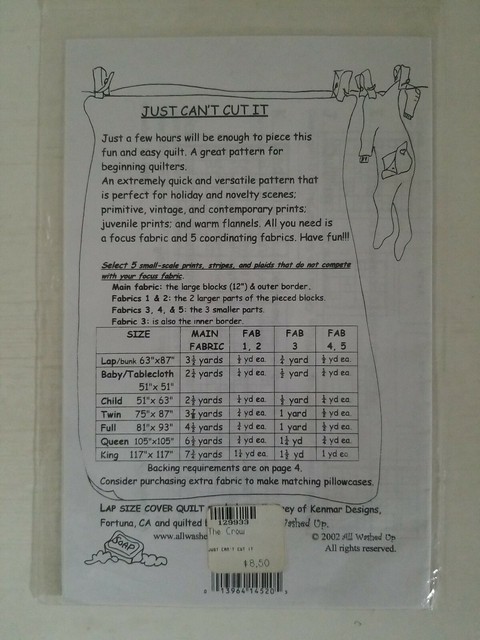 JUST CAN'T CUT IT
Just a few hours will be enough to piece this
fun and easy quilt. A great pattern for
beginning quilters.
An extremely quick and versatile pattern that
is perfect for holiday and novelty scenes;
primitive, vintage, and contemporary prints;
juvenile prints; and warm flannels. All you need is
a focus fabric and 5 coordinating fabrics. Have fun!!!
Select 5 small-scale prints, stripes, and plaids that do not compete
with your focus fabric.
Main fabric: the large blocks (12") & outer border.
Fabrics 1 & 2: the 2 larger parts of the pieced blocks.
Fabrics 3, 4, & 5: the 3 smaller parts.
Fabric 3: is also the inner border.
SIZE MAIN FABRIC FAB 1, 2 FAB 3 FAB 4, 5
Lap/bunk 63"x87" yards yd ea. yard yd ea.
Baby/Tablecloth 51"x 51" yards yd ea. yard yd ea.
Child 51"x 63" yards yd ea. yard yd ea.
Twin 75"x 87" yards yd ea. 1 yard yd ea.
Full 81"x 93" yards yd ea. 1 yard yd ea.
Queen 105"x105" yards yd ea. yd yd ea.
King 117"x 117" yards yd ea. yd 1 yd ea.
Backing requirements are on page 4.
Consider purchasing extra fabric to make matching pillowcases.
LAP SIZE COVER QUILT ey of Kenmar Designs,
Fortuna, CA and quilted Washed Up.
www.allwashe © 2002 All Washed Up
All rights reserved.
SOAP
129933
The Crow
JUST CAN'T CUT IT
$8.50
2 13964 14520 5